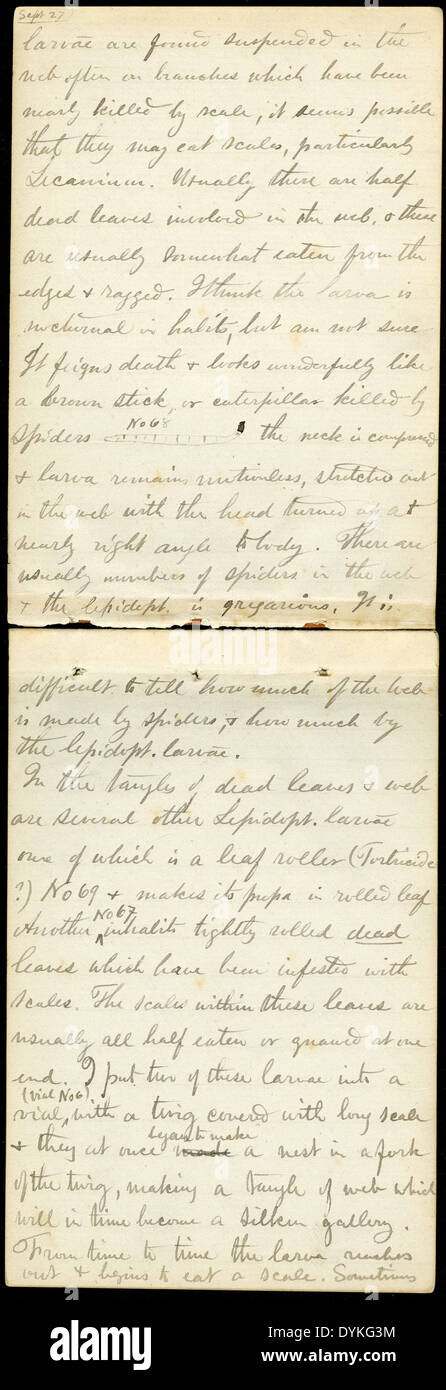 Sept 27
larvae are found suspended in the
web often on branches which have been
nearly killed by scale, it seems possible
that they may eat scales, particularly
Lecanium. Usually there are half
dead leaves involved in the web, & these
are usually somewhat eaten from the
edges & ragged. I think the larva is
nocturnal in habits, but am not sure
It feigns death & looks wonderfully like
a brown stick, or caterpillar killed by
spiders No 68 the neck is compressed
& larva remains motionless, stretched out
in the web with the head turned up at
nearly right angle to body. There are
usually numbers of spiders in the web
& the lepidopt. is gregarious. It is
difficult to tell how much of the web
is made by spiders, & how much by
the lepidopt. larvae.
In the tangles of dead leaves & web
are several other Lepidopt. larvae
one of which is a leaf roller (Tortricidae
?) No 69 & makes its pupa in rolled leaf
Another No 67 inhabits tightly rolled dead
leaves which have been infested with
scales. The scales within these leaves are
usually all half eaten or gnawed at one
end. I put two of these larvae into a
(vial No 6)
vial, with a twig covered with long scale
& they at once made began to make a nest in a fork
of the twig, making a tangle of web which
will in time become a silken gallery.
From time to time the larva reaches
out & begins to eat a scale. Sometimes
alamy stock photo
DYKG3M
www.alamy.com